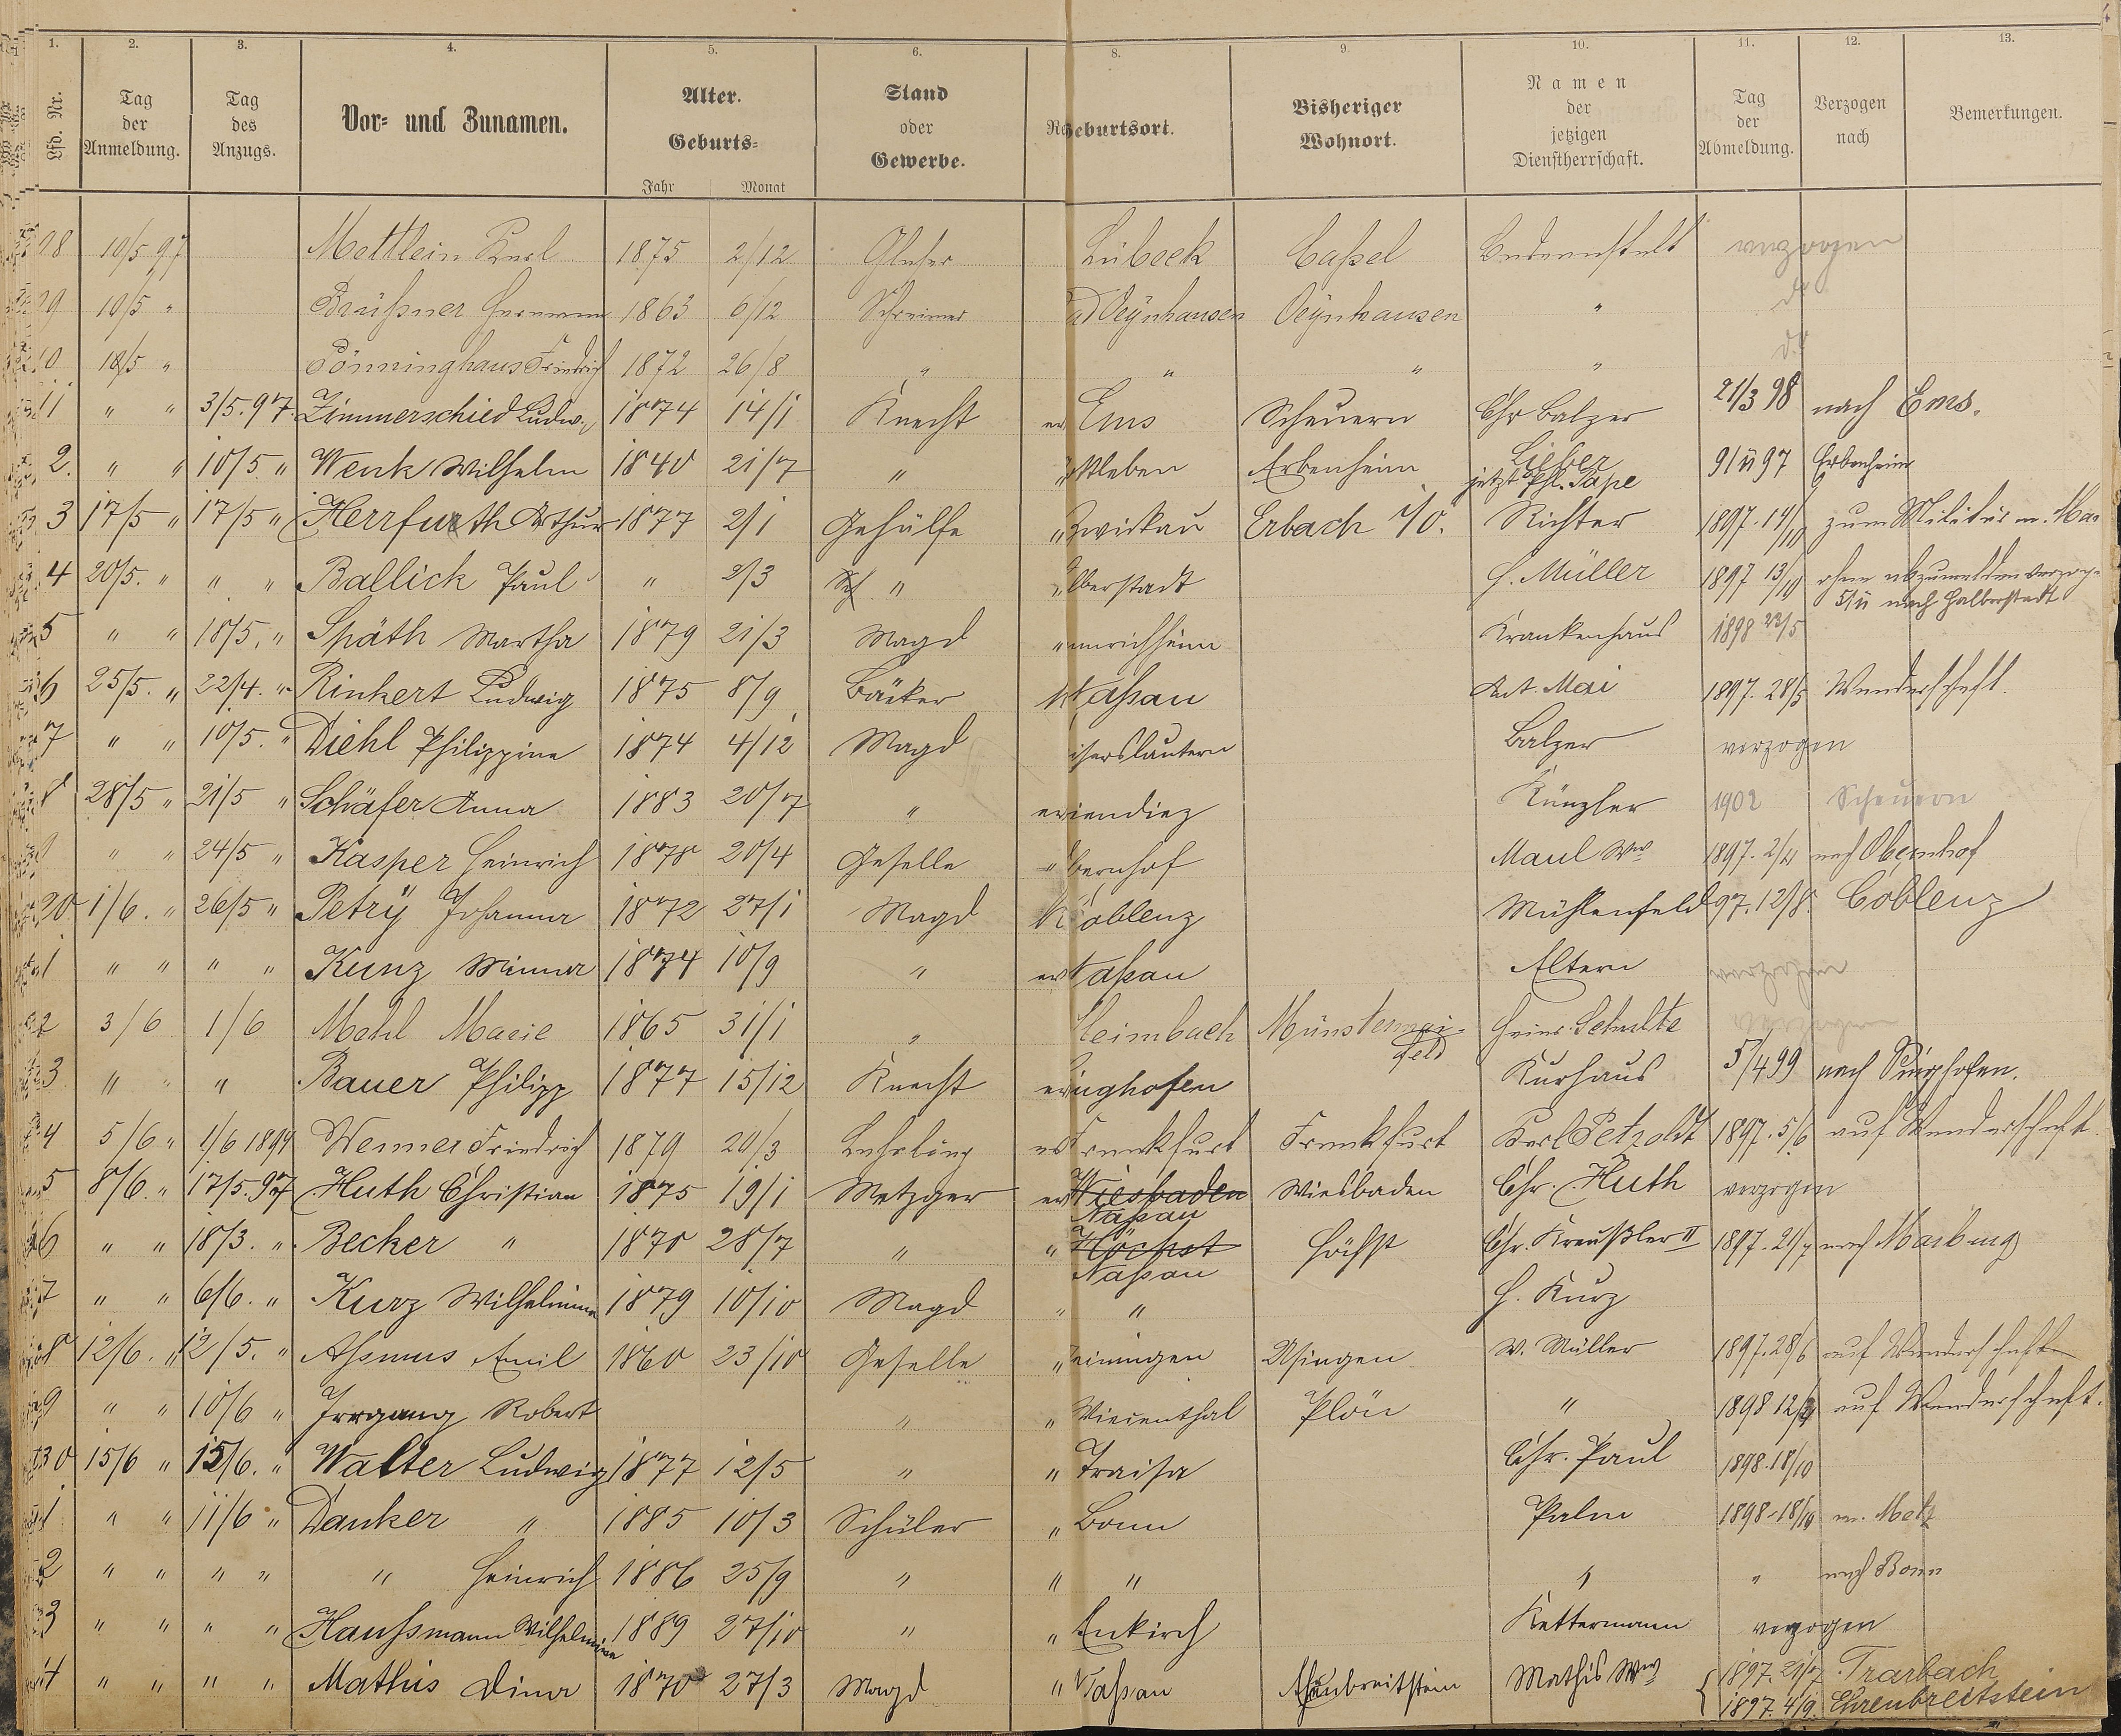 1. 2. 3. 4. 5. 6. 8. 9. 10. 11. 12. 13.
Lfd. Nr. | Tag der Anmeldung. | Tag des Anzugs. | Vor- und Zunamen. | Alter. Geburts- Jahr Monat | Stand oder Gewerbe. | Geburtsort. | Bisheriger Wohnort. | Namen der jetzigen Dienstherrschaft. | Tag der Abmeldung. | Verzogen nach | Bemerkungen.
08 10/5 97 Mettlein Karl 1875 2/12 Glaser Lübeck Caßel Badeanstalt verzogen
09 10/5 " Brüßner Hermann 1863 6/12 Schreiner Oeÿnhausen Oeÿnhausen " do
10 18/5 " Pönninghaus Friedrich 1872 26/8 " " " " do
11 " " 3/5. 97. Zimmerschied Ludw. 1874 14/1 Knecht Ems Scheuern Chr Balzer 21/3 98 nach Ems.
2. " " 10/5. " Wenk Wilhelm 1840 21/7 " Erbenheim Lieber jetzt Phl. Pape 9/11 97 Erbenheim
3 17/5 " 17/5 " Herrfurth Arthur 1877 2/1 Gehülfe " Zwickau Erbach i/O. Richter 1897. 14/10 zum Militär n.
4 20/5. " " " Ballick Paul " 2/3 " " lberstadt H. Müller 1897 13/10 ohne abzumelden verzog. 5/11 nach Halberstadt
5 " " 18/5. " Späth Martha 1879 21/3 Magd Krankenhaus 1898 23/5
6 25/5. " 22/4. " Rinkert Ludwig 1875 8/9 Bäcker Naßau Ant. Mai 1897. 28/5 Wanderschaft.
7 " " 10/5. " Diehl Philippine 1874 4/12 Magd iserslautern Balzer verzogen
8 28/5 " 21/5 " Schäfer Anna 1883 20/7 " iendiez Künzler 1902 Scheuern
9 " " 24/5 " Kasper Heinrich 1878 20/4 Geselle " bernhof Maul Wwe 1897. 2/11 nach Obernhof
20 1/6. " 26/5 " Petrÿ Johanna 1872 27/1 Magd Koblenz Mühlenfeld 97. 12/8. Coblenz
1 " " " " Kunz Minna 1874 10/9 " Naßau Eltern verzogen
2 3/6 1/6 Mohl Marie 1865 31/1 " Leimbach Münstermaifeld Heinr. Schulte
3 " " " Bauer Philipp 1877 15/12 Knecht inghofen Kurhaus 5/4 99 nach Singhofen.
4 5/6 " 1/6 1897 Werner Friedrich 1879 24/3 Lehrling Frankfurt Frankfurt Karl Petzoldt 1897. 5/6 auf Wanderschaft
5 8/6. " 17/5. 97 Huth Christian 1875 19/1 Metzger Wiesbaden Naßau Wiesbaden Chr. Huth verzogen
6 " " 18/3. " Becker " 1870 28/7 " " Höchst Naßau Höchst Chr. Kreußler II 1897. 21/7 nach Marburg
7 " " 6/6. " Kurz Wilhelmina 1879 10/10 Magd " " H. Kurz
8 12/6. " 12/5. " Aßmus Emil 1860 23/10 Geselle " einingen Usingen W. Müller 1897. 28/6 auf Wanderschaft
9 " " 10/6 " Irrgang Robert " " Wiesenthal Plön " 1898 12/3 auf Wanderschaft.
30 15/6 " 15/6. " Walter Ludwig 1877 12/5 " " Traisa Chr. Paul 1898. 18/10
1 " " 11/6 " Danker " 1885 10/3 Schüler " Bonn Palm 1898 - 18/10 n. Metz
2 " " " " " Heinrich 1886 25/9 " " " " " nach Bonn
3 " " " " Haußmann Wilhelmine 1889 27/10 " " Enkirch Kettermann verzogen
4 " " " " Mathis Dina 1870 27/3 Magd " Naßau Ehrenbreitstein Mathis Wwe { 1897. 21/7. Trarbach
1897. 4/9. Ehrenbreitstein